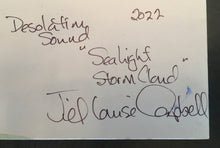 Desolation 2022
Sound
"Sealight
Storm Cloud"
Jiel Louise